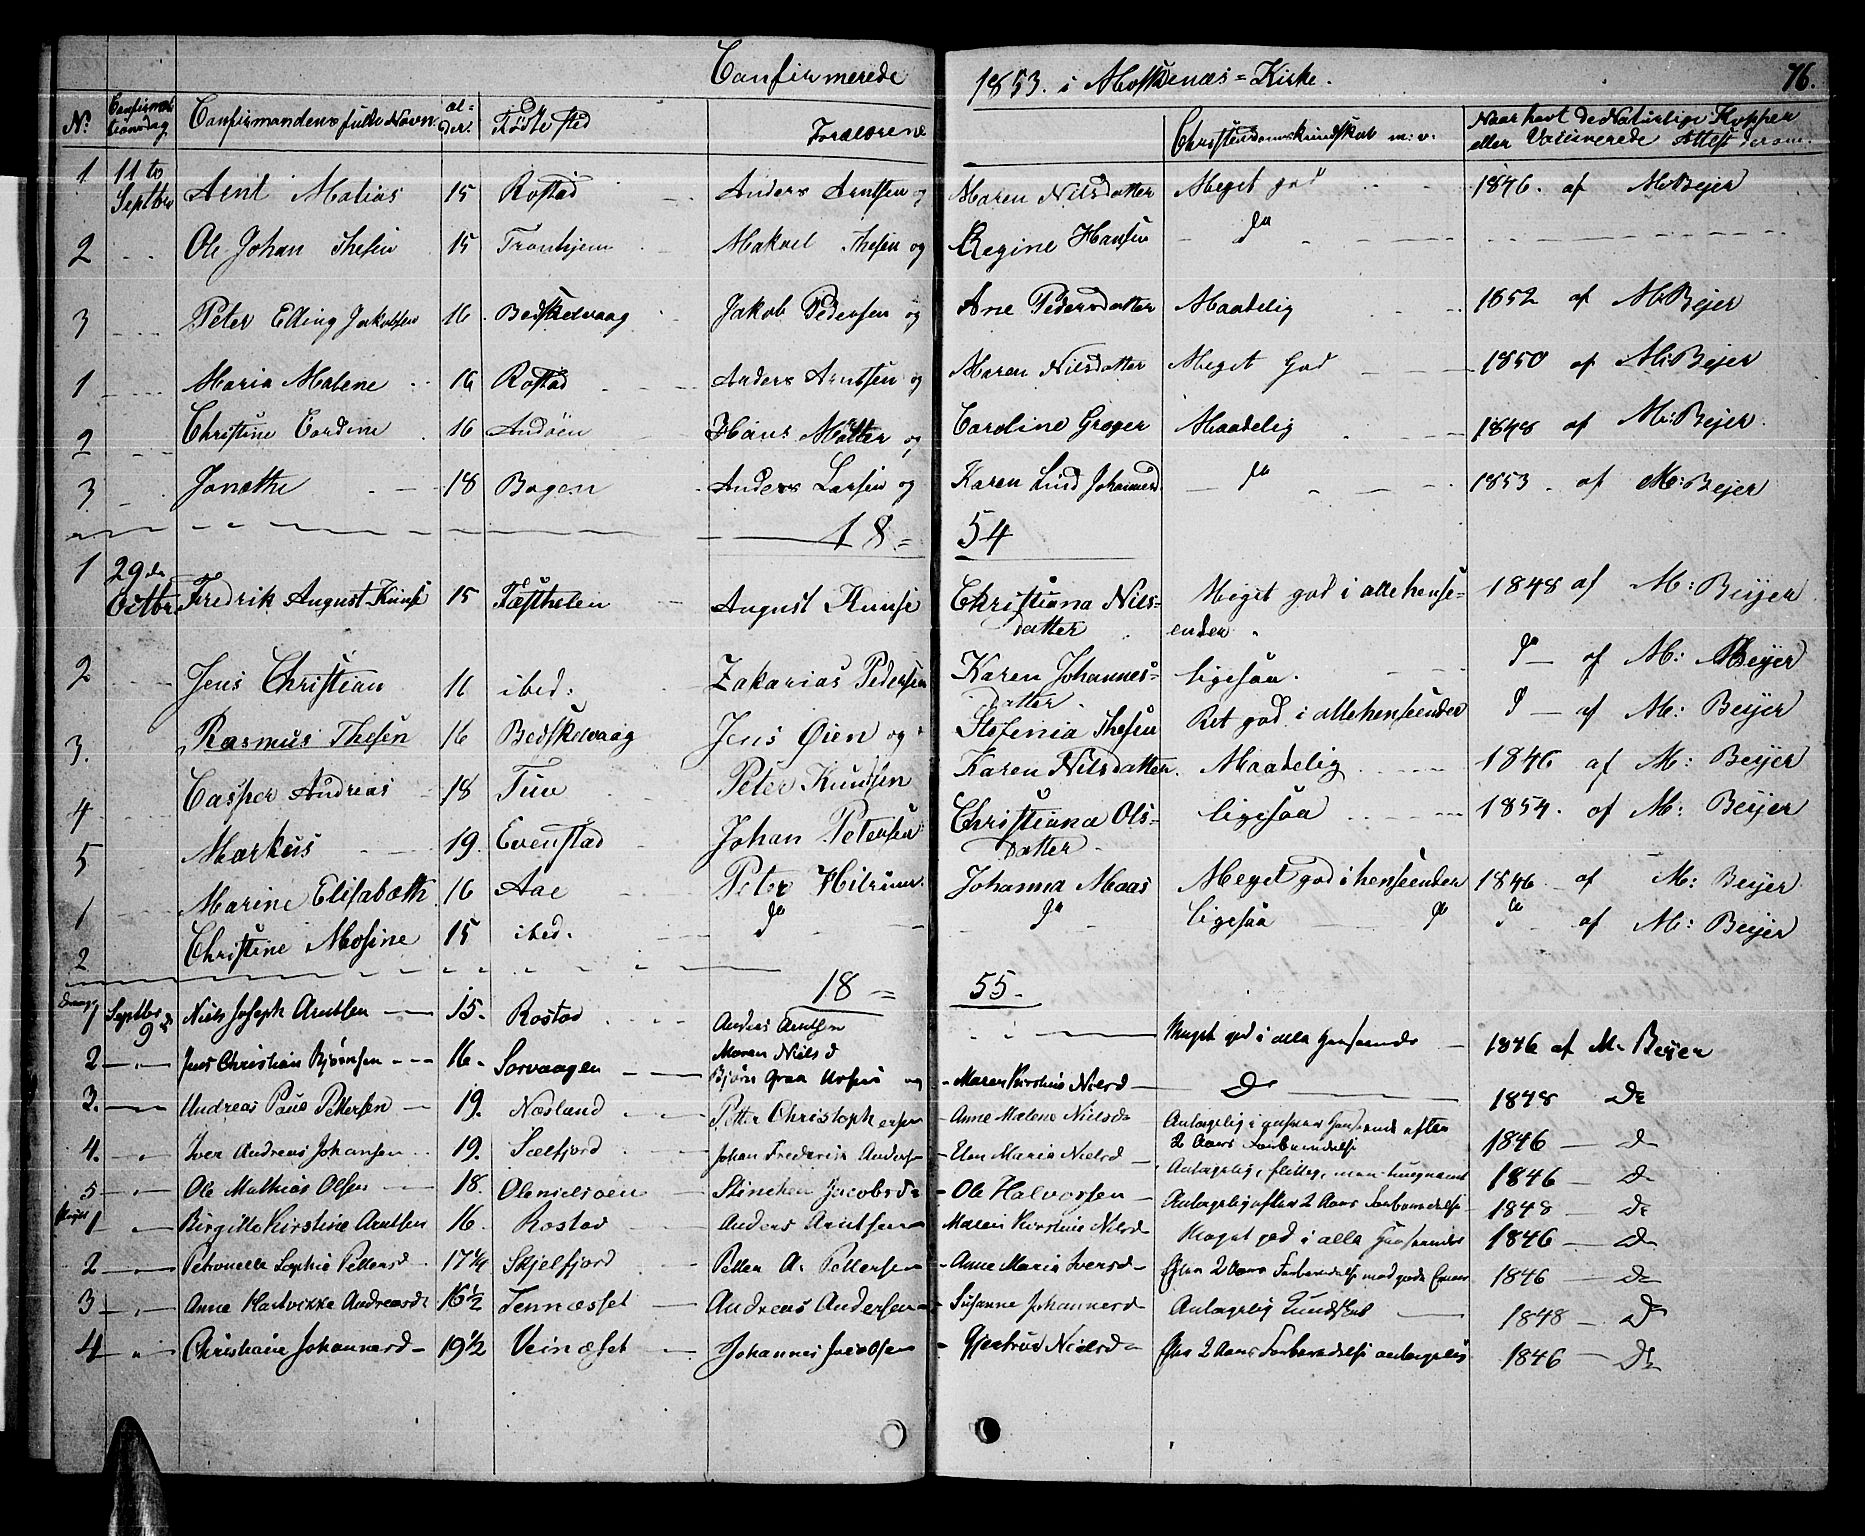 Confirmerede 1853. i Moskenæs=Kirke. 76.
No: Confirmationsdag Confirmandens fulde Navn Alder. Fødested Forældrene Christendomskundskab m: v: Naar havt de Naturlige Kopper
eller Vaccinerede Attest derom.
1 11te Septbr Arnt Matias 15 Rostad Anders Arntsen og Maren Nilsdatter Meget god 1846. af M: Bejer
2 Ole Johan Thesen 15 Tronhjem Thesen og Regine Hansen do
3 Peter Elling Jakobsen 16 Bedskelvaag Jakob Pedersen og Ane Pedersdatter Maadelig 1852 af M: Bejer
1 Maria Malene 16 Rostad Anders Arntsen og Maren Nilsdatter Meget God 1850 af M: Bejer
2 Christine 16 Andøen Hans og Caroline Groger Maadelig 1848 af M: Bejer.
3 Jonette 18 Bogen Anders Larsen og Karen Lind Johannesd do 1853. af M: Bejer
18=54
1 29de Octbr Fredrik August Kunse 15 Festhelen August Kunse Christiana Nils= Meget god i allehense= 1848 af M: Beijer
datter ender.
2 Jens Christian 16 ibed: Zakarias Pedersen Karen Johannes= ligesaa. do af M: Beijer
datter.
3. Rasmus Thesen 16 Bedskelvaag Jens Øien og Stefenia Thesen Ret god i allehenseender do af M: Beijer
4 Casper Andreas 18 Tuv Peter Knudsen Karen Nilsdatter. Maadelig 1846 af M: Beijer
5 Markus 19. Evenstad Johan Petersen Christiana Ols= ligesaa 1854. af M: Beijer
datter.
1 Marine Elisabeth 16 Aae Peter Johanna Maas Meget god i henseender 1846 af M: Beijer
2 Christine Mosine 15 ibed. do do ligesaa do do af M: Beijer
18=55.
Drenge 1 Septbr 9de Niels Joseph Arntsen 15. Rostad Anders Arntsen Meget god i alle Henseende 1846 af M. Beijer
Maren Nielsd
2 Jens Christian Bjørnsen 16. Sorvaagen Bjørn Graa og Maren Kirstine Nielsd Do 1848 Do
3. Andreas Paul Pettersen 19. Næsland Petter Christophersen Anne Malene Nielsd Antagelig i Henseende efter
2 Aars Forberedelse 1846 Do
4. Iver Andreas Johansen 19. Sælfjord Johan Frederik Andersen Maria Nielsd Antagelig, flittig, men 1846 Do
5 Ole Mathias Olsen 18. Olenielsøen Stinchen Jacobsd Ole Halvorsen Antagelig efter 2 Aars Forberedelse 1848 Do
Piger 1 Birgitte Kirstine Arntsen 16. Rostad Anders Arntsen Maren Kirstine Nielsd Meget god i alle Henseender 1846 Do
2 Petronelle Sophie Pettersd 17¼ Skjelfjord Petter A. Pettersen Anne Marie Iversd Efter 2 Aars Forberedelse med gode Evner 1846 Do
3 Anne Hartvikke Andreasd 16½ Tennæsset Andreas Andersen Susanne Johannesd Antagelig Kundskab 1848 Do
4 Christiane Johannesd 19½ Veinæset Johannes Jacobsen Gjertrud Nielsd Efter 2 Aars Forberedelse antagelig 1846 Do